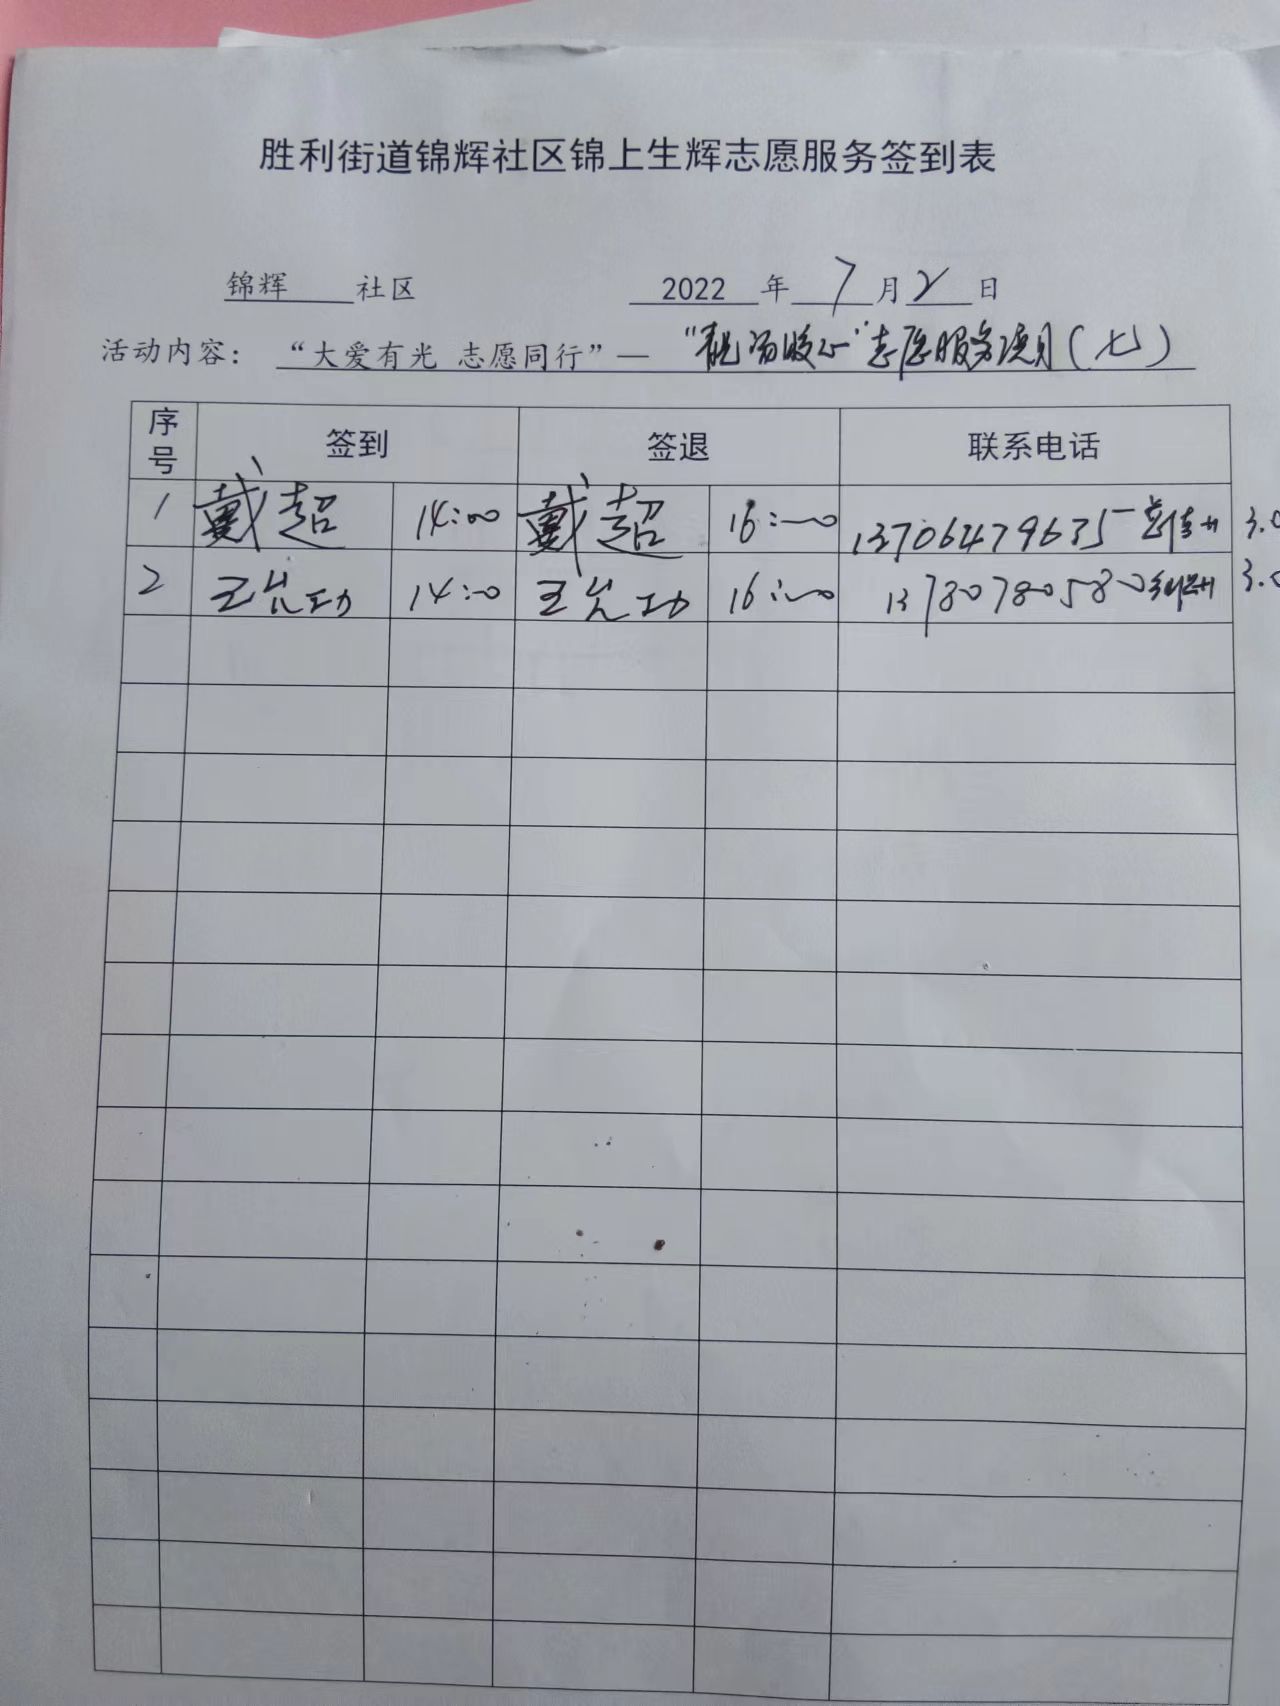 胜利街道锦辉社区锦上生辉志愿服务签到表
锦辉 社区 2022 年 7 月 2 日
活动内容： “大爱有光 志愿同行”— 志愿服务项目（七）
序号 签到 签退 联系电话
1 戴超 14:00 戴超 16:00 13706479635 3.0
2 王光功 14:00 王光功 16:00 13780780580 3.0